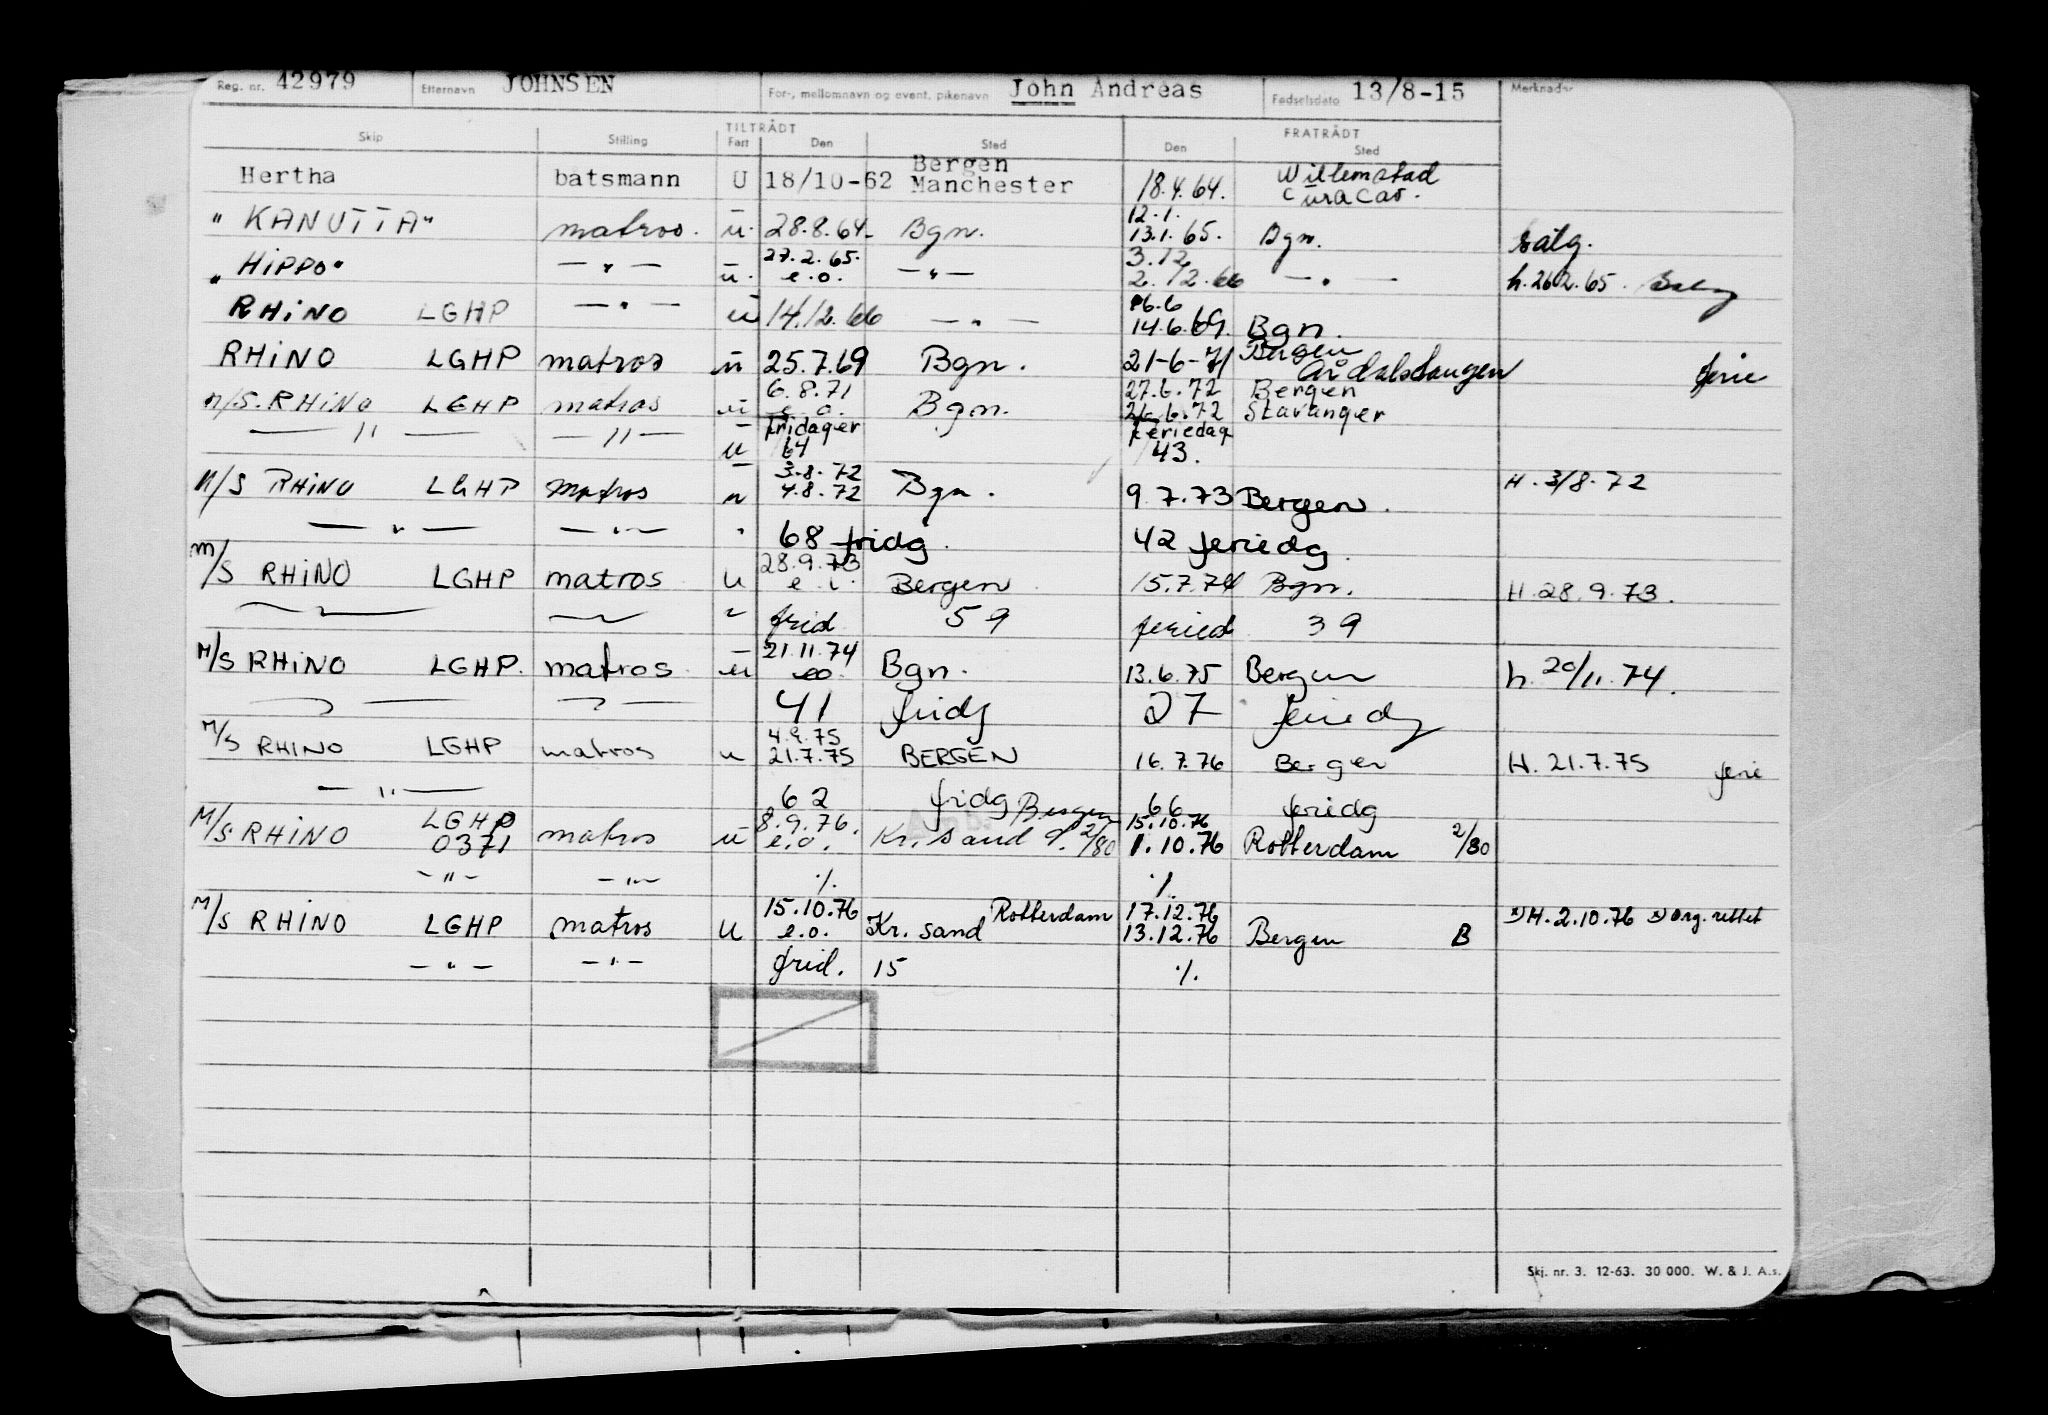 Reg. nr. 42979 Etternavn JOHNSEN For-, mellomnavn og event. pikenavn John Andreas Fødselsdato 13/8-15 Merknader
TILTRÅDT FRATRÅDT
Skip Stilling Fart Den Sted Den Sted
Bergen Willemstad
Hertha batsmann U 18/10-62 Manchester 18.4.64. Curacao.
12.1.
"KANUTTA" matros. u. 28.8.64. Bgn. 13.1.65. Bgn. salg.
27.2.65. 3.12
"HIPPO" — " — u. e.o. — " — 2.12.66 — " — h. 26.2.65.
16.6
RHINO LGHP — " — u 14.12.66 — " — 14.6.69. Bgn.
Bergen
RHINO LGHP matros u 25.7.69 Bgn. 21-6-71 Årdalstangen ferie
6.8.71 27.6.72 Bergen
M/S. RHINO LGHP matros u e.o. Bgn. 26.6.72 Stavanger
Fridager Feriedag
— " — — " — u 64 43.
3.8.72
M/S RHINO LGHP matros u 4.8.72 Bgn. 9.7.73 Bergen. H. 3/8.72
— " — — " — " 68 fridg. 42 feriedg.
28.9.73
M/S RHINO LGHP matros u e.o. Bergen 15.7.74 Bgn. H. 28.9.73.
frid 59 feried 39
21.11.74
M/S RHINO LGHP. matros u eo. Bgn. 13.6.75 Bergen h. 20/11.74.
41 fridg 27 feriedg
4.9.75
M/S RHINO LGHP matros u 21.7.75 BERGEN 16.7.76 Bergen H. 21.7.75 ferie
— " — 62 fridg 66 feriedg
LGHP 8.9.76. Bergen 15.10.76
M/S RHINO 0371 matros u e.o. Kr. sand S. 2/80 1.10.76 Rotterdam 2/80
— " — — " — % %
15.10.76 Rotterdam 17.12.76
M/S RHINO LGHP matros U e.o. Kr. sand 13.12.76 Bergen B x) H. 2.10.76 x) Org. rettet
— " — — " — frid. 15 %
Skj. nr. 3. 12-63. 30 000. W. & J. A.s.